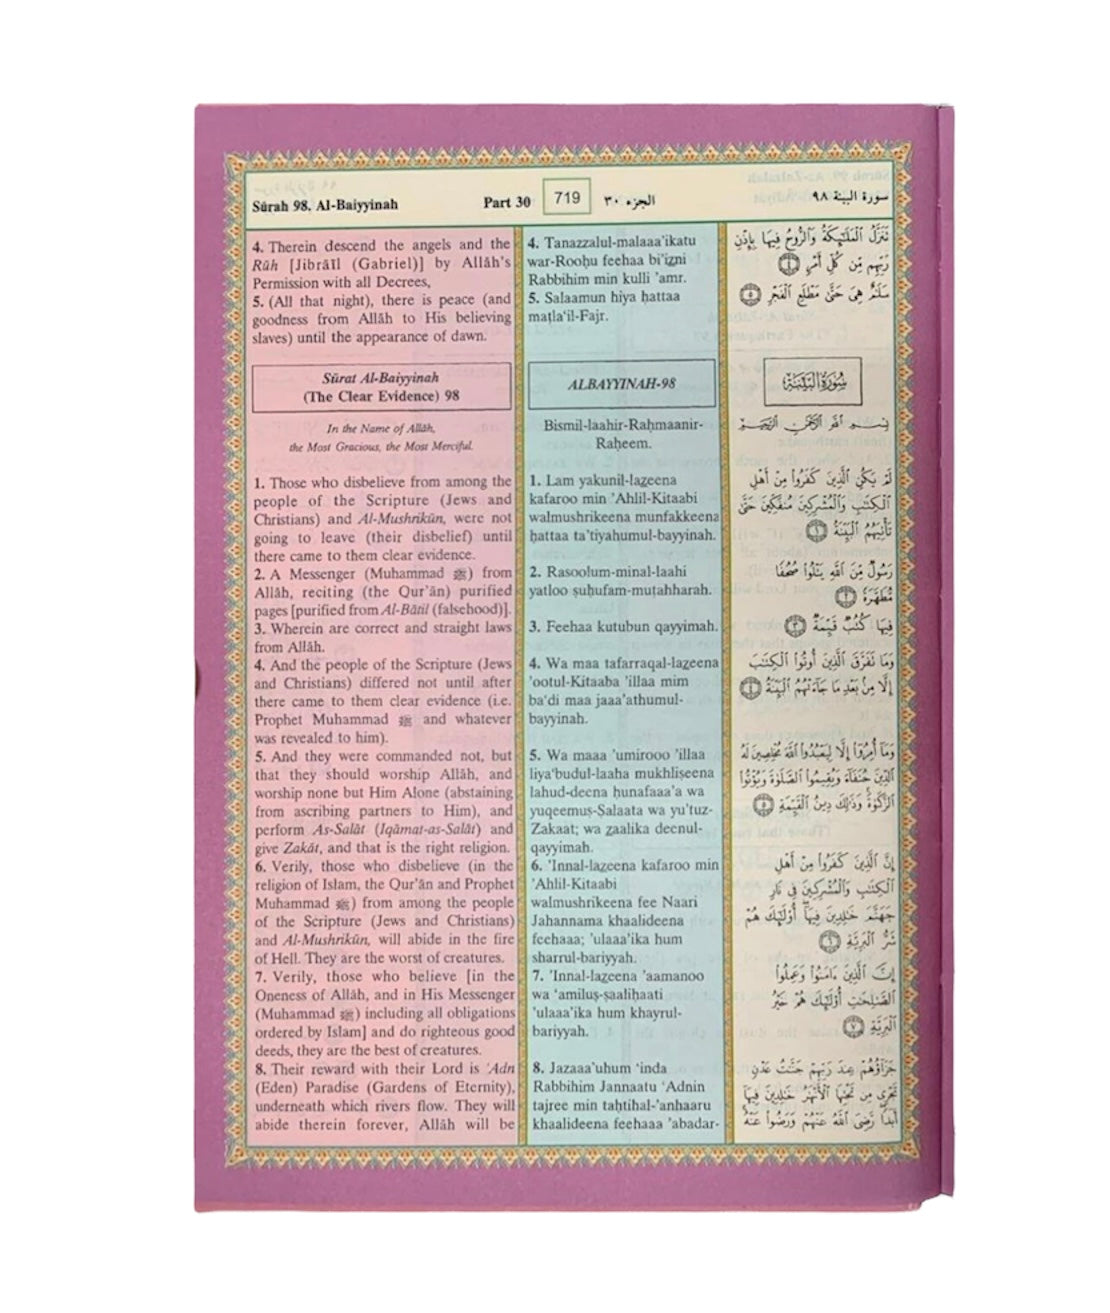 Sûrah 98. Al-Baiyyinah
Part 30
719
الجزء ٣٠
سورة البينة ٩٨
4. Therein descend the angels and the
Rûh [Jibrâîl (Gabriel)] by Allâh's
Permission with all Decrees,
5. (All that night), there is peace (and
goodness from Allâh to His believing
slaves) until the appearance of dawn.
Sûrat Al-Baiyyinah
(The Clear Evidence) 98
In the Name of Allâh,
the Most Gracious, the Most Merciful.
1. Those who disbelieve from among the
people of the Scripture (Jews and
Christians) and Al-Mushrikûn, were not
going to leave (their disbelief) until
there came to them clear evidence.
2. A Messenger (Muhammad ﷺ) from
Allâh, reciting (the Qur'ân) purified
pages [purified from Al-Bâtil (falsehood)].
3. Wherein are correct and straight laws
from Allâh.
4. And the people of the Scripture (Jews
and Christians) differed not until after
there came to them clear evidence (i.e.
Prophet Muhammad ﷺ and whatever
was revealed to him).
5. And they were commanded not, but
that they should worship Allâh, and
worship none but Him Alone (abstaining
from ascribing partners to Him), and
perform As-Salât (Iqâmat-as-Salât) and
give Zakât, and that is the right religion.
6. Verily, those who disbelieve (in the
religion of Islam, the Qur'ân and Prophet
Muhammad ﷺ) from among the people
of the Scripture (Jews and Christians)
and Al-Mushrikûn, will abide in the fire
of Hell. They are the worst of creatures.
7. Verily, those who believe [in the
Oneness of Allâh, and in His Messenger
(Muhammad ﷺ) including all obligations
ordered by Islam] and do righteous good
deeds, they are the best of creatures.
8. Their reward with their Lord is 'Adn
(Eden) Paradise (Gardens of Eternity),
underneath which rivers flow. They will
abide therein forever, Allâh will be
4. Tanazzalul-malaaa'ikatu
war-Rooḥu feehaa bi'iẓni
Rabbihim min kulli 'amr.
5. Salaamun hiya ḥattaa
maṭla‘il-Fajr.
ALBAYYINAH-98
Bismil-laahir-Raḥmaanir-
Raḥeem.
1. Lam yakunil-laẓeena
kafaroo min 'Ahlil-Kitaabi
walmushrikeena munfakkeena
ḥattaa ta'tiyahumul-bayyinah.
2. Rasoolum-minal-laahi
yatloo ṣuḥufam-muṭahharah.
3. Feehaa kutubun qayyimah.
4. Wa maa tafarraqal-laẓeena
'ootul-Kitaaba 'illaa mim
ba‘di maa jaaa'athumul-
bayyinah.
5. Wa maaa 'umirooo 'illaa
liya‘budul-laaha mukhliṣeena
lahud-deena ḥunafaaa'a wa
yuqeemuṣ-Ṣalaata wa yu'tuz-
Zakaat; wa ẓaalika deenul-
qayyimah.
6. 'Innal-laẓeena kafaroo min
'Ahlil-Kitaabi
walmushrikeena fee Naari
Jahannama khaalideena
feehaaa; 'ulaaa'ika hum
sharrul-bariyyah.
7. 'Innal-laẓeena 'aamanoo
wa ‘amiluṣ-ṣaaliḥaati
'ulaaa'ika hum khayrul-
bariyyah.
8. Jazaaa'uhum ‘inda
Rabbihim Jannaatu ‘Adnin
tajree min taḥtihal-'anhaaru
khaalideena feehaaa 'abadar-
تَنَزَّلُ الْمَلَٰٓئِكَةُ وَالرُّوحُ فِيهَا بِإِذْنِ
رَبِّهِم مِّن كُلِّ أَمْرٍ ٤
سَلَٰمٌ هِىَ حَتَّىٰ مَطْلَعِ الْفَجْرِ ٥
سُورَةُ الْبَيِّنَةِ
بِسْمِ اللَّهِ الرَّحْمَٰنِ الرَّحِيمِ
لَمْ يَكُنِ الَّذِينَ كَفَرُوا مِنْ أَهْلِ
الْكِتَٰبِ وَالْمُشْرِكِينَ مُنفَكِّينَ حَتَّىٰ
تَأْتِيَهُمُ الْبَيِّنَةُ ١
رَسُولٌ مِّنَ اللَّهِ يَتْلُوا صُحُفًا
مُّطَهَّرَةً ٢
فِيهَا كُتُبٌ قَيِّمَةٌ ٣
وَمَا تَفَرَّقَ الَّذِينَ أُوتُوا الْكِتَٰبَ
إِلَّا مِنۢ بَعْدِ مَا جَآءَتْهُمُ الْبَيِّنَةُ ٤
وَمَآ أُمِرُوٓا إِلَّا لِيَعْبُدُوا اللَّهَ مُخْلِصِينَ لَهُ
الدِّينَ حُنَفَآءَ وَيُقِيمُوا الصَّلَوٰةَ وَيُؤْتُوا
الزَّكَوٰةَ وَذَٰلِكَ دِينُ الْقَيِّمَةِ ٥
إِنَّ الَّذِينَ كَفَرُوا مِنْ أَهْلِ
الْكِتَٰبِ وَالْمُشْرِكِينَ فِى نَارِ
جَهَنَّمَ خَٰلِدِينَ فِيهَآ أُو۟لَٰٓئِكَ هُمْ
شَرُّ الْبَرِيَّةِ ٦
إِنَّ الَّذِينَ ءَامَنُوا وَعَمِلُوا
الصَّٰلِحَٰتِ أُو۟لَٰٓئِكَ هُمْ خَيْرُ
الْبَرِيَّةِ ٧
جَزَآؤُهُمْ عِندَ رَبِّهِمْ جَنَّٰتُ عَدْنٍ
تَجْرِى مِن تَحْتِهَا الْأَنْهَٰرُ خَٰلِدِينَ فِيهَآ
أَبَدًا رَّضِىَ اللَّهُ عَنْهُمْ وَرَضُوا عَنْهُ